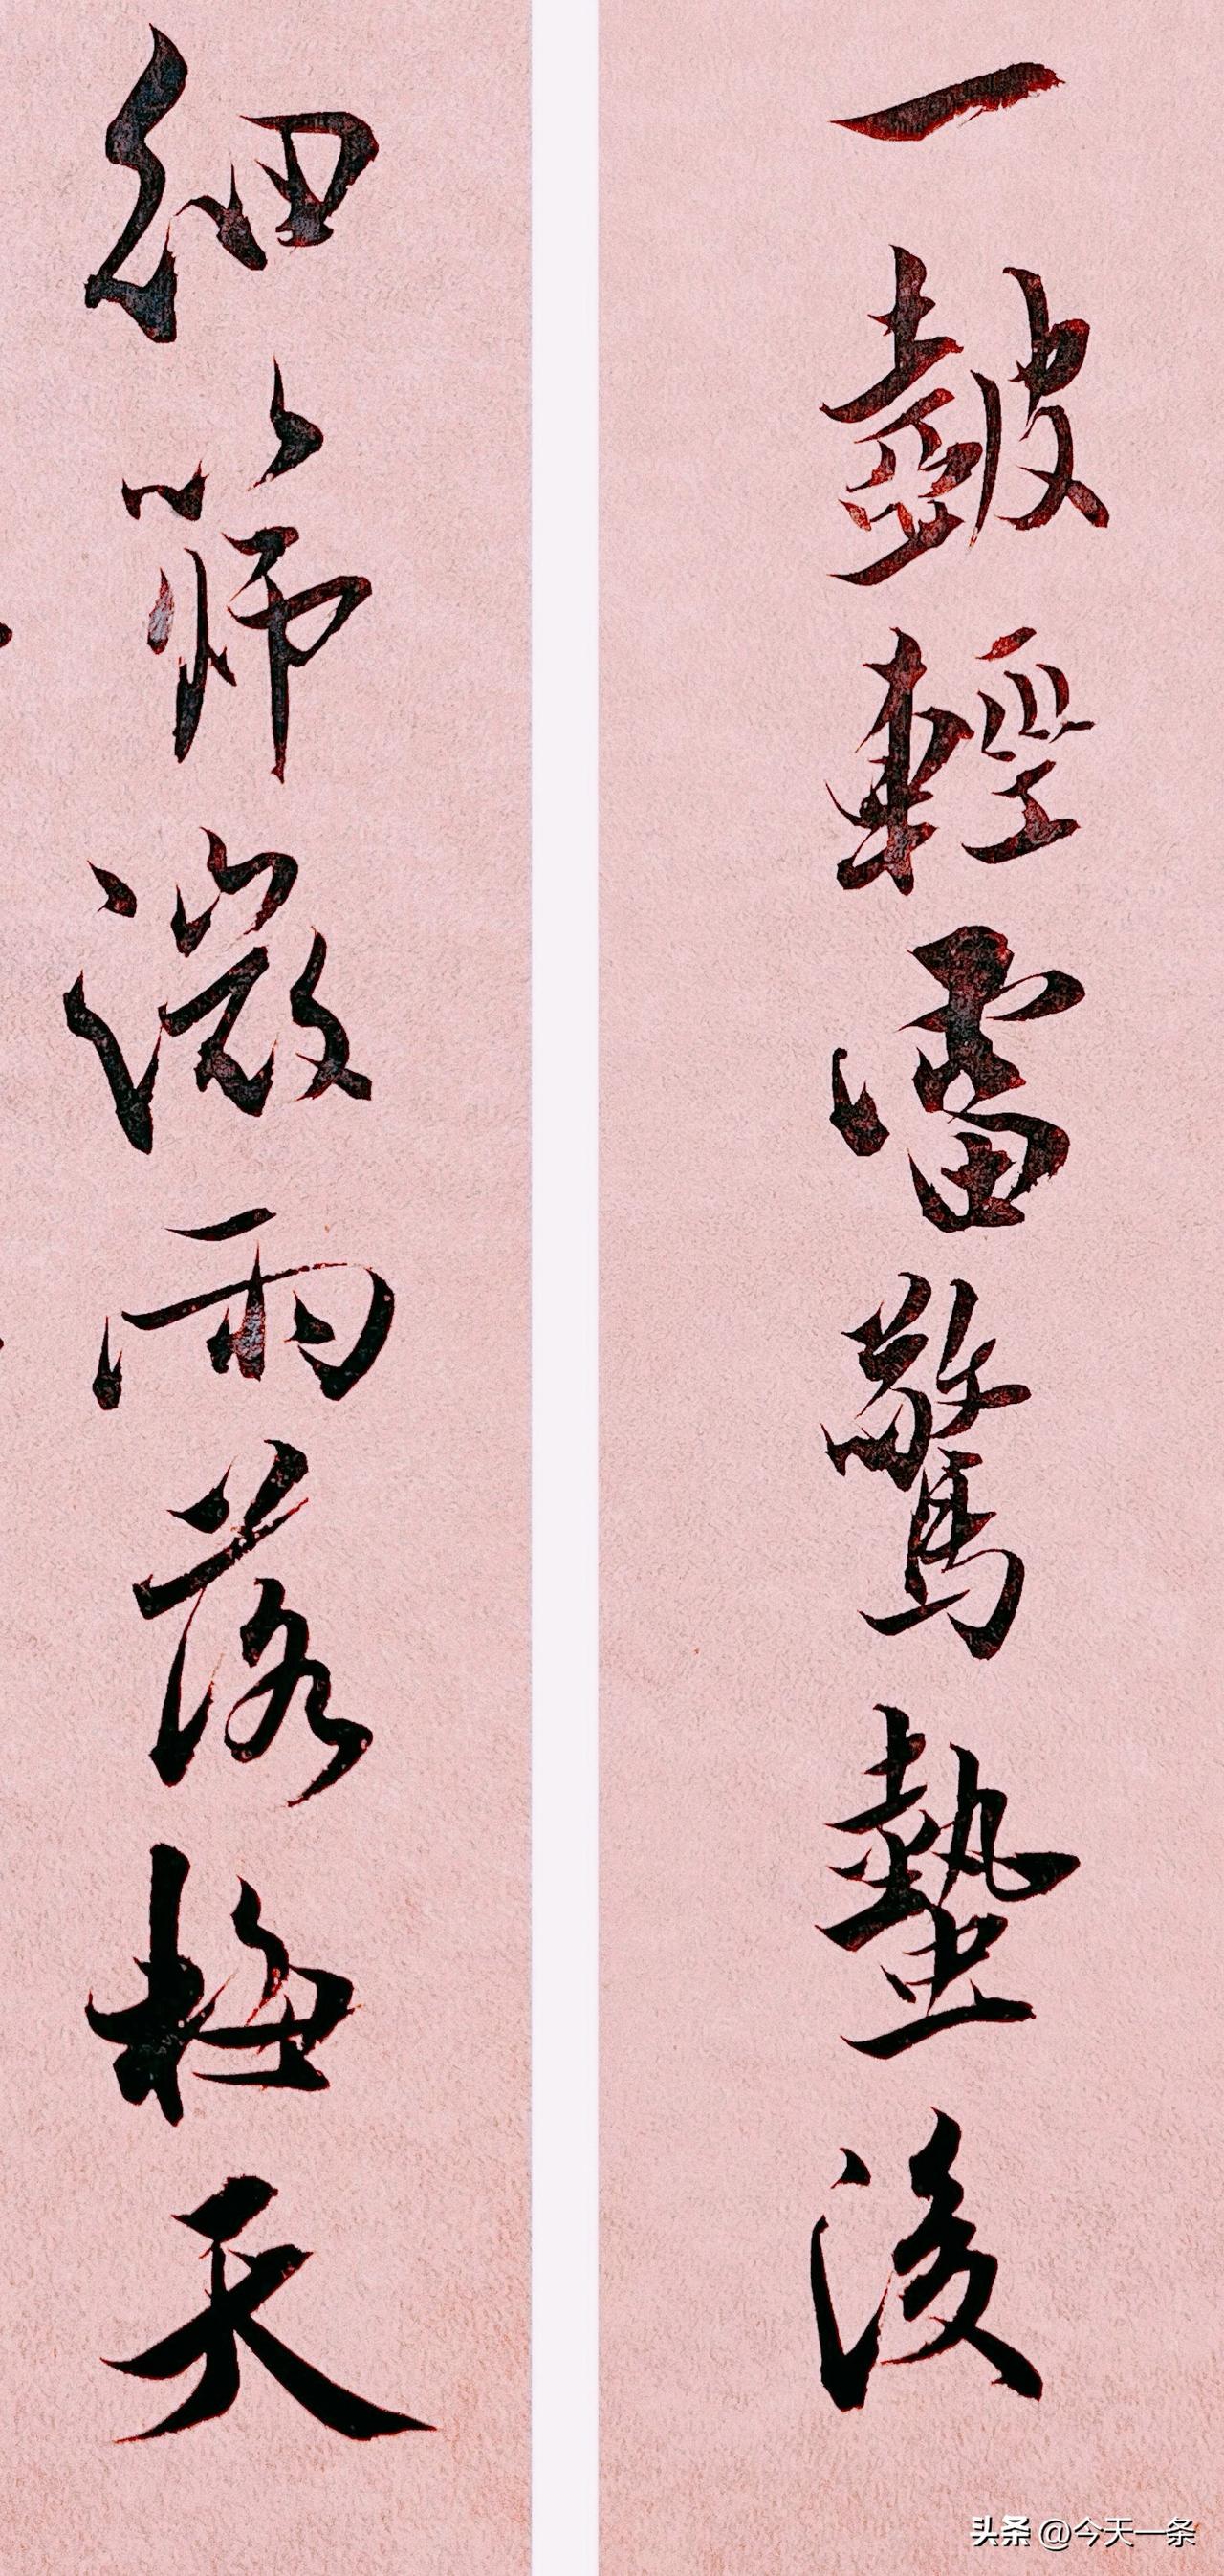 一鼓輕雷驚蟄後
細篩微雨落梅天
头条 @今天一条